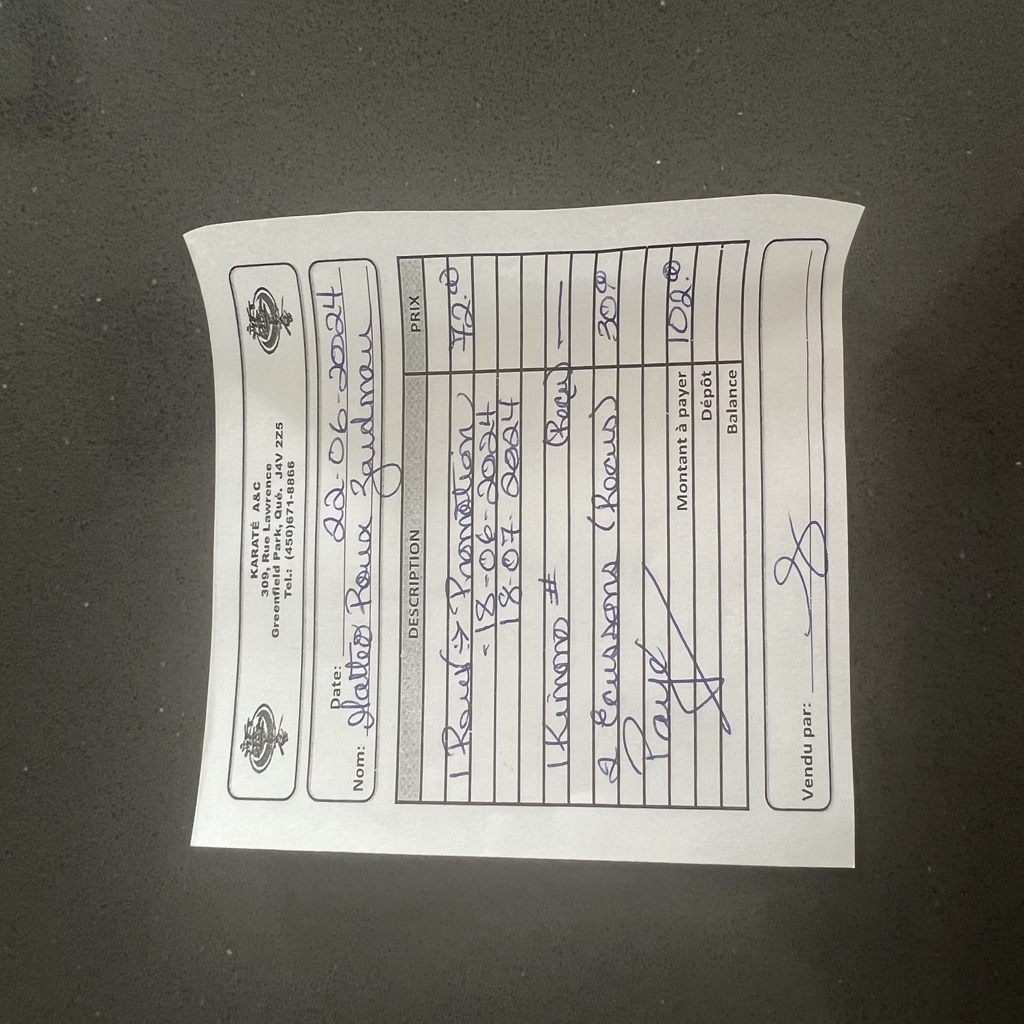 KARATÉ A&C
309, Rue Lawrence
Greenfield Park, Qué. J4V 2Z5
Tel.: (450)671-8866
Date: 22-06-2024
Nom: Mattéo Roux Zaidman
DESCRIPTION PRIX
1 Promotion 72.00
- 18-06-2024
18-07-2024
1 Kimono # (Reçu) —
2 Ecussons (Recus) 30.00
Payé
Montant à payer 102.00
Dépôt
Balance
Vendu par: